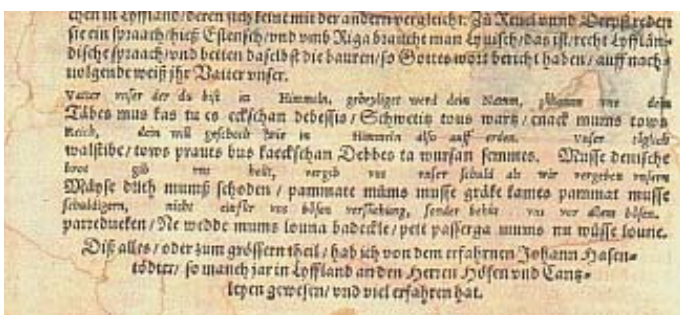 chen in Lyffland/deren sich keine mit der andern vergleicht. Zů Reuel vnnd Derpt reden
sie ein spraach/hieß Estensch/vnd vmb Riga braucht man Lyuisch/das ist/recht Lyfflän-
dische spraach/vnd betten daselbst die bauren/so Gottes wort bericht haben/auff nach-
uolgende weiß jhr Vatter vnser.
Vatter vnser der du bist in Himmeln, geheyliget werd dein Namm, vns dein
Täbes mus kas tu es eckschan debessis/Schwetitz tous wartz/enack mums tows
Reich, dein will geschech wie in Himmeln also auff erden. Vnser täglich
walstibe/tows praats bus kaeckschan Debbes ta wursan semmes. Musse denische
brot gib vns heüt, vergib vns vnser schuld als wir vergeben vnsern
Mayse důth mumß schoden/pammate mums musse gräke kames pammat musse
schuldigern, nicht einfür vns bösen versůchung, sonder behüt vns vor allem bösen.
parreduecken/Ne wedde mums louna badeckle/pett passerga mums nu wüsse loune.
Diß alles/oder zum grössern theil/hab ich von dem erfahrnen Johann Hasen-
tödter/so manch jar in Lyffland an den Herren Höfen vnd Cantz-
leyen gewesen/vnd viel erfahren hat.